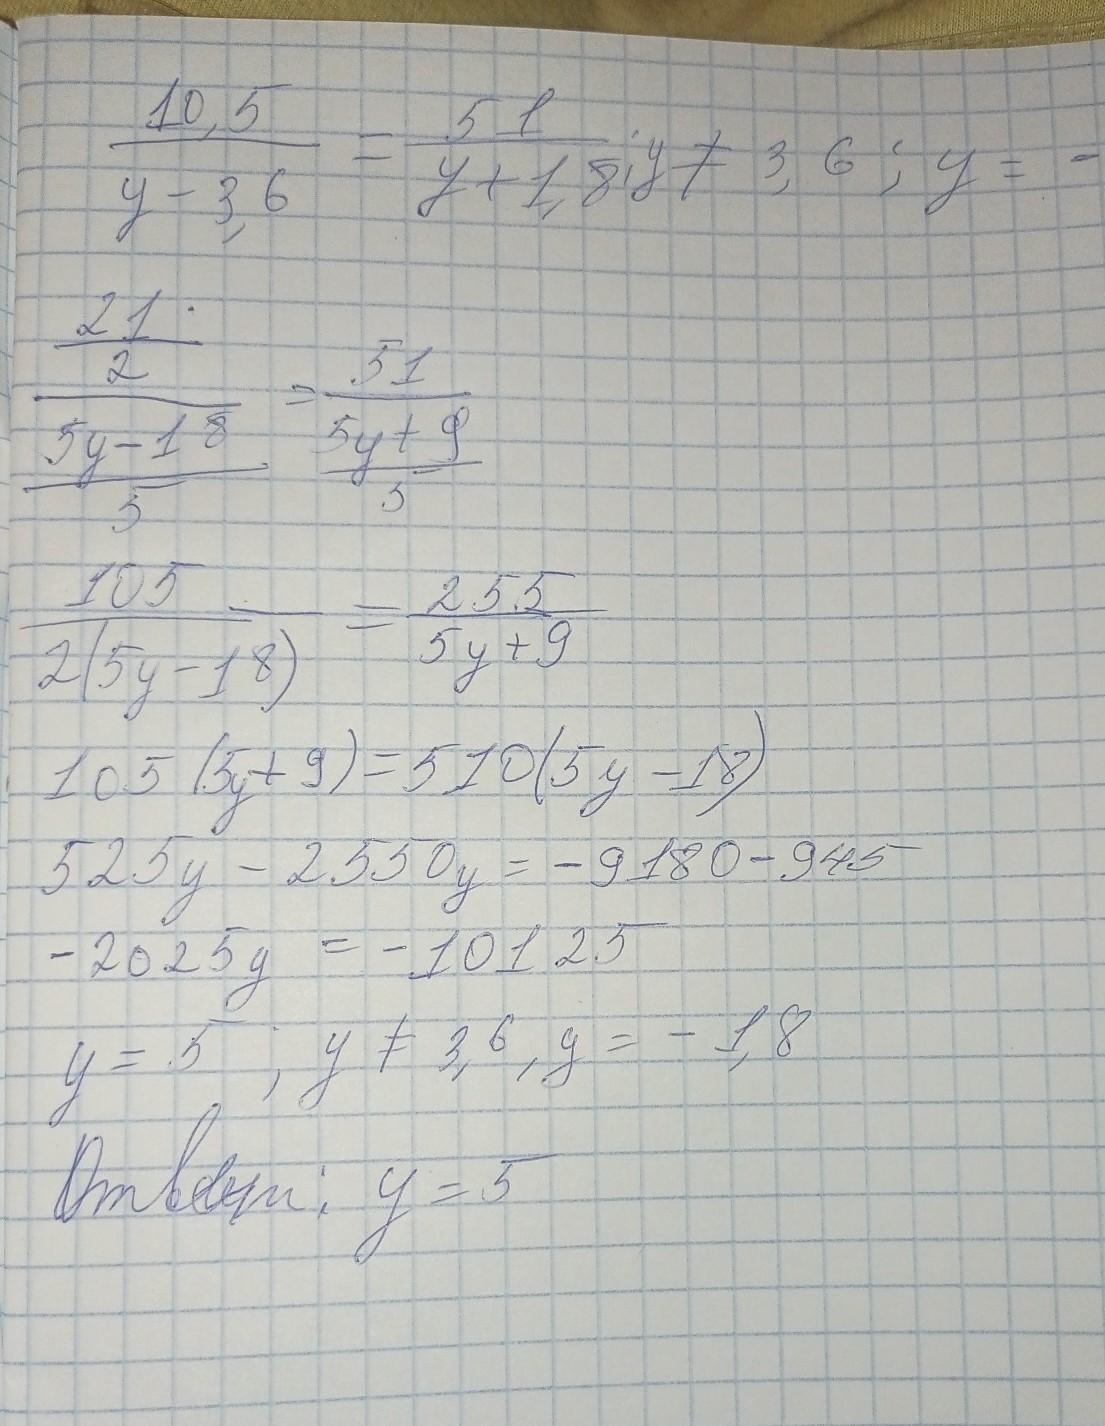 10,5/(y-3,6) = 51/(y+1,8); y ≠ 3,6; y = -
(21/2)/((5y-18)/5) = 51/((5y+9)/5)
105/(2(5y-18)) = 255/(5y+9)
105(5y+9)=510(5y-18)
525y-2550y=-9180-945
-2025y=-10125
y=5; y≠3,6, y=-1,8
Ответ: y=5